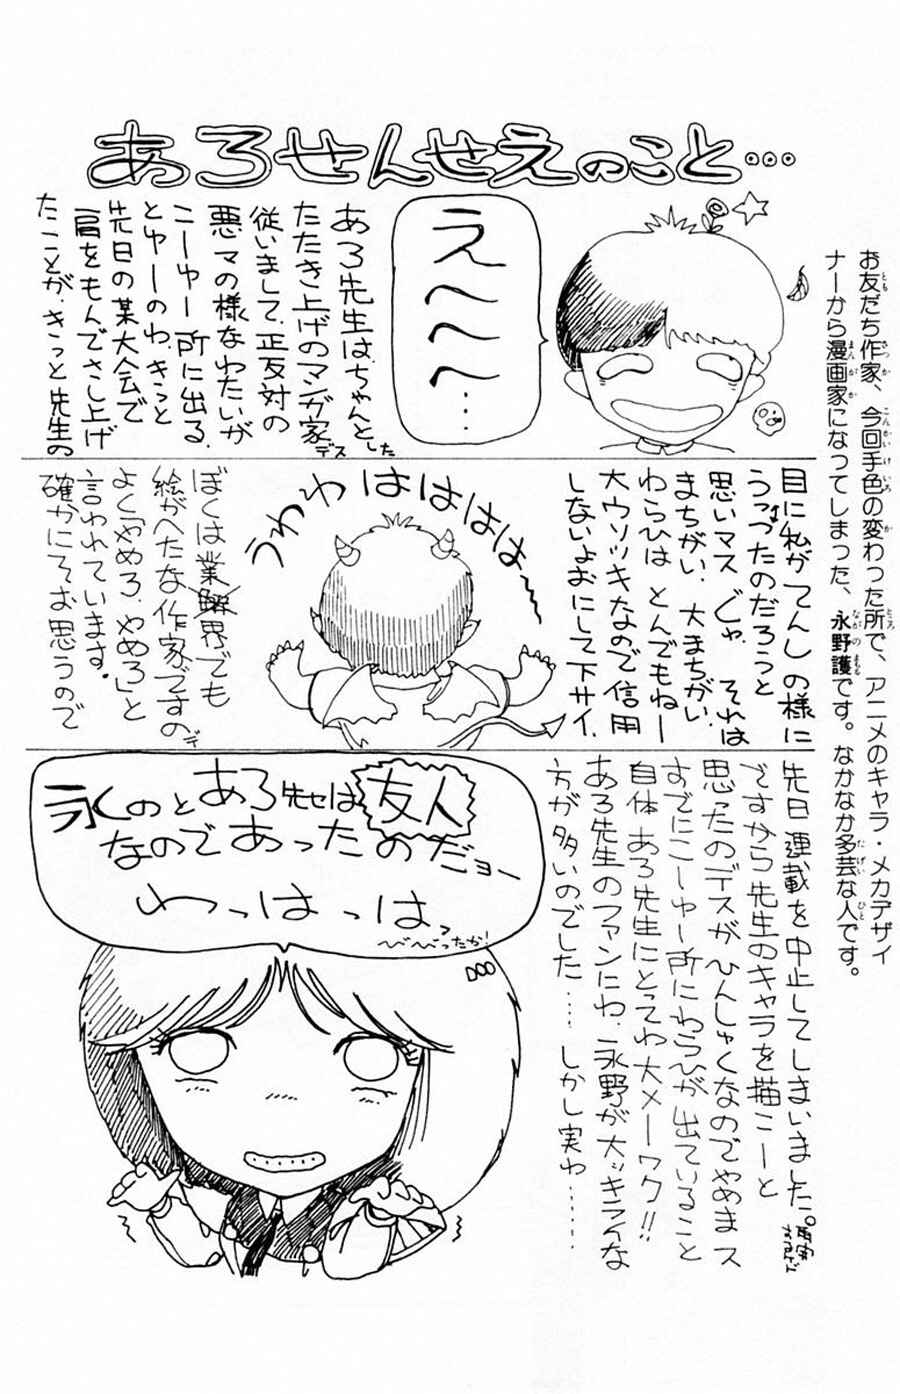 お友だち作家、今回手色の変わった所で、アニメのキャラ・メカデザイ
ナーから漫画家になってしまった、永野護です。なかなか多芸な人です。
あろせんせえのこと…
え〜〜〜……
あろ先生は、ちゃんとした
たたき上げのマンガ家デス
従いまして、正反対の
悪マの様なわたいが
こーゆー所に出る
とゆーのわ、きっと
先日の某大会で
肩をもんでさし上げ
たことが、きっと先生の
目に私がてんしの様に
うつったのだろうと
思いマス じゃ、それは
まちがい、大まちがい、
わらひは とんでもねー
大ウソツキなので信用
しないよおにして下サイ、
うわわはははははは〜
ぼくは業界でも
絵がへたな作家ですの
よく「やめろ、やめろ」と
言われています。
確かにそお思うので
先日 連載を中止してしまいました。
ですから先生のキャラを描こーと
思ったのデスが ひんしゅくなのでやめマス
すでにこーゆー所にわらひが出ていること
自体 あろ先生にとってわ大メーワク!!
あろ先生のファンにわ、永野が大ッキライな
方が多いのでした…… しかし実わ………
永のとあろ先セは友人
なのであったのだョー
わっはっは